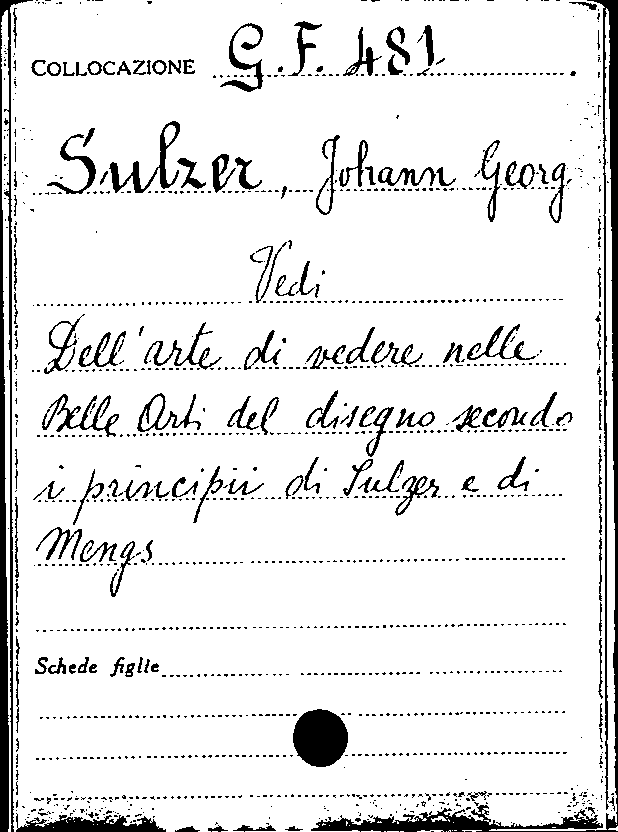 COLLOCAZIONE G. F. 481.
Sulzer, Johann Georg
Vedi
Dell'arte di vedere nelle
Belle Arti del disegno secondo
i principii di Sulzer e di
Mengs
Schede figlie